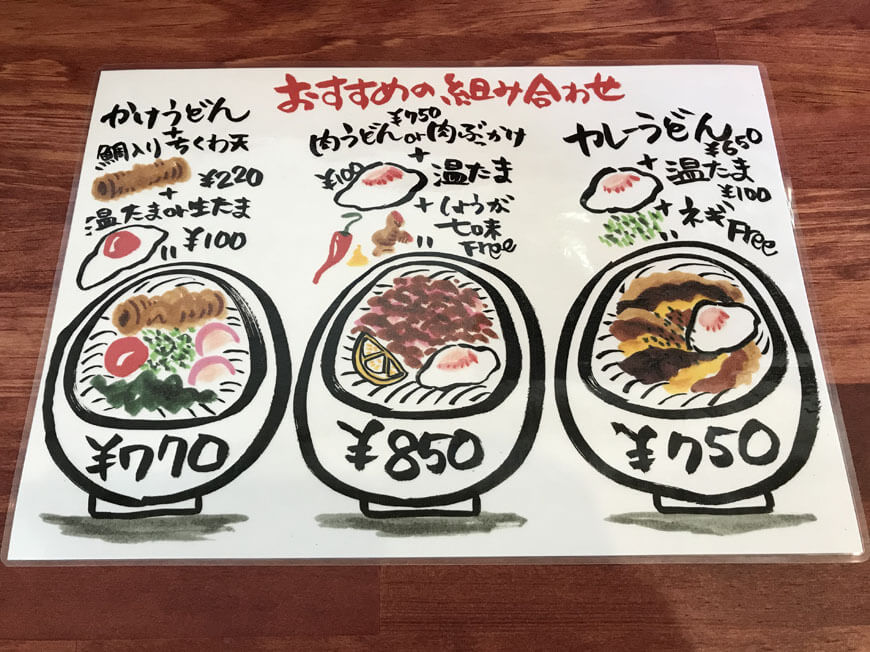 おすすめの組み合わせ
かけうどん
+
鯛入りちくわ天
¥220
+
温たまor生たま
¥100
"
¥770
¥750
肉うどんor肉ぶっかけ
+
¥100 温たま
+ しょうが
七味
Free
"
¥850
カレーうどん
¥650
+
温たま
¥100
+ ネギ
Free
"
¥750